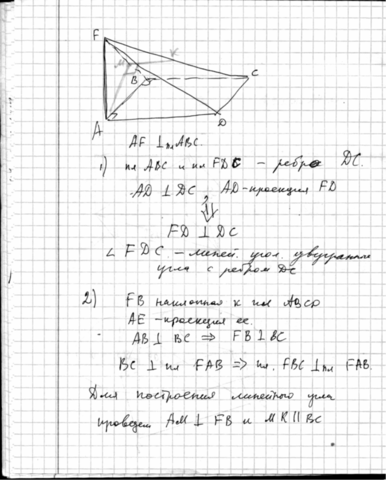 F
M K
B C
A D
AF ⊥ пл ABC.
1) пл ABC и пл FDC – ребро DC.
AD ⊥ DC AD-проекция FD
FD ⊥ DC
∠ FDC – линей. угол двугранного
угла с ребром DC
2) FB наклонная к пл ABCD
AE – проекция ее.
AB ⊥ BC ⇒ FB ⊥ BC
BC ⊥ пл FAB ⇒ пл. FBC ⊥ пл FAB.
Для построения линейного угла
проведем AM ⊥ FB и MK || BC